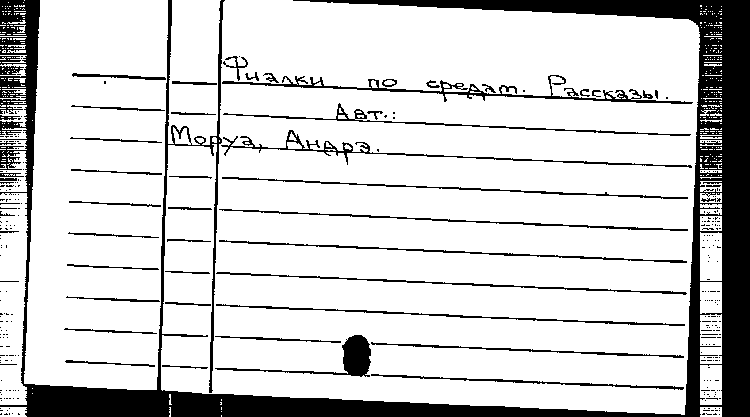 Фиалки по средам. Рассказы.
Авт.:
Моруа, Андрэ.